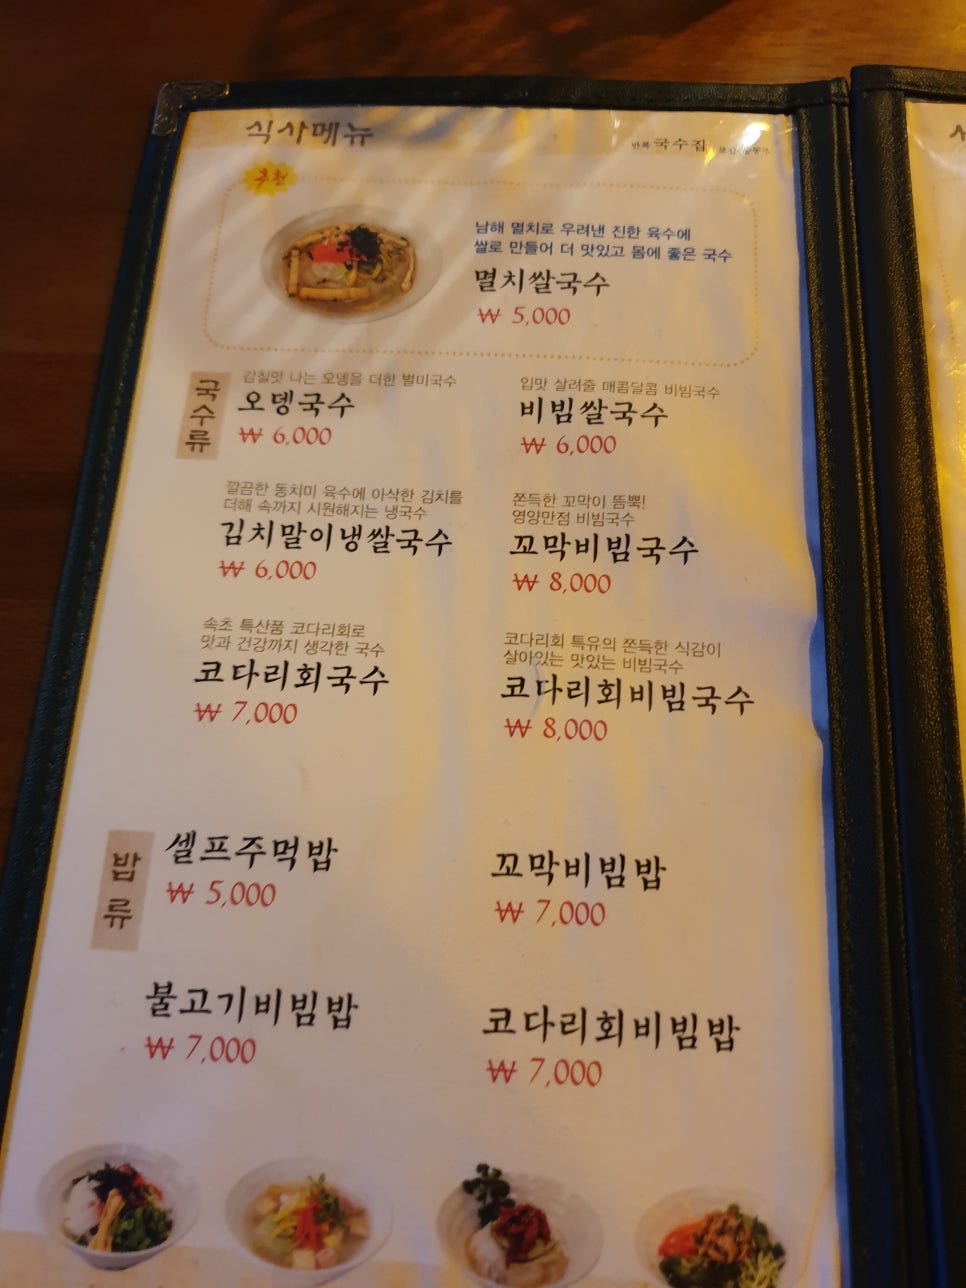 식사메뉴
만복 국수집
추천
남해 멸치로 우려낸 진한 육수에
쌀로 만들어 더 맛있고 몸에 좋은 국수
멸치쌀국수
₩ 5,000
국수류
감칠맛 나는 오뎅을 더한 별미국수
오뎅국수
₩ 6,000
입맛 살려줄 매콤달콤 비빔국수
비빔쌀국수
₩ 6,000
깔끔한 동치미 육수에 아삭한 김치를
더해 속까지 시원해지는 냉국수
김치말이냉쌀국수
₩ 6,000
쫀득한 꼬막이 듬뿍!
영양만점 비빔국수
꼬막비빔국수
₩ 8,000
속초 특산품 코다리회로
맛과 건강까지 생각한 국수
코다리회국수
₩ 7,000
코다리회 특유의 쫀득한 식감이
살아있는 맛있는 비빔국수
코다리회비빔국수
₩ 8,000
밥류
셀프주먹밥
₩ 5,000
꼬막비빔밥
₩ 7,000
불고기비빔밥
₩ 7,000
코다리회비빔밥
₩ 7,000